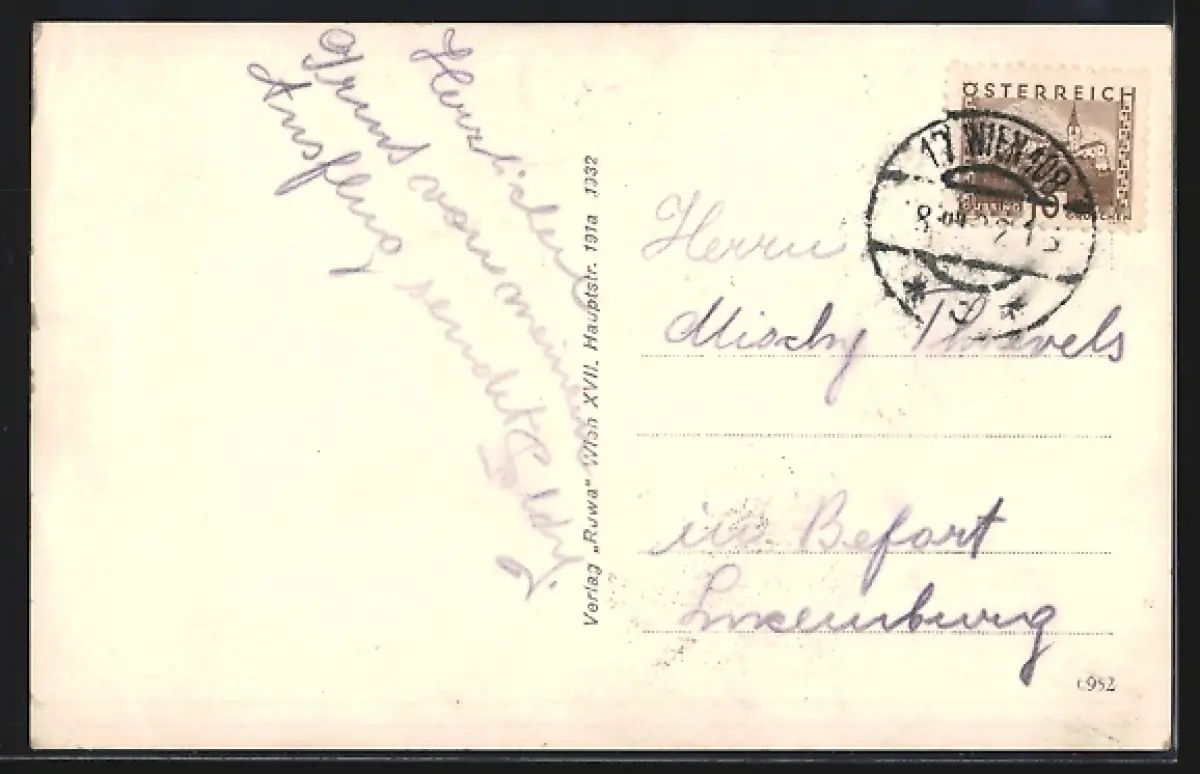 Herzlichen
Gruß von meinem
Ausflug sendet
Verlag „Ruwa" Wien XVII. Hauptstr. 191a 1932
ÖSTERREICH
GROSCHEN
17 WIEN 108
Herrn
Mischy
in Befort
Luxemburg